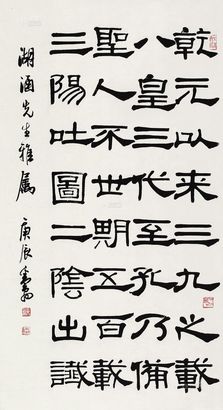 乾元以来三九之載
八皇三代至孔乃備
聖人不世期五百載
三陽吐圖二陰出讖
湖涵先生雅属
庚辰